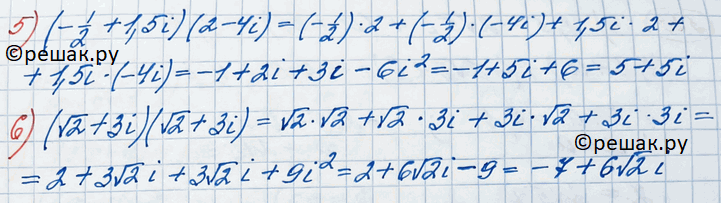 5) (-1/2 + 1,5i)(2-4i) = (-1/2)·2 + (-1/2)·(-4i) + 1,5i·2 +
©решак.ру
+ 1,5i·(-4i) = -1+2i+3i-6i² = -1+5i+6 = 5+5i
6) (√2+3i)(√2+3i) = √2·√2 + √2·3i + 3i·√2 + 3i·3i =
©решак.ру
= 2+3√2i+3√2i+9i² = 2+6√2i-9 = -7+6√2i
©решак.ру